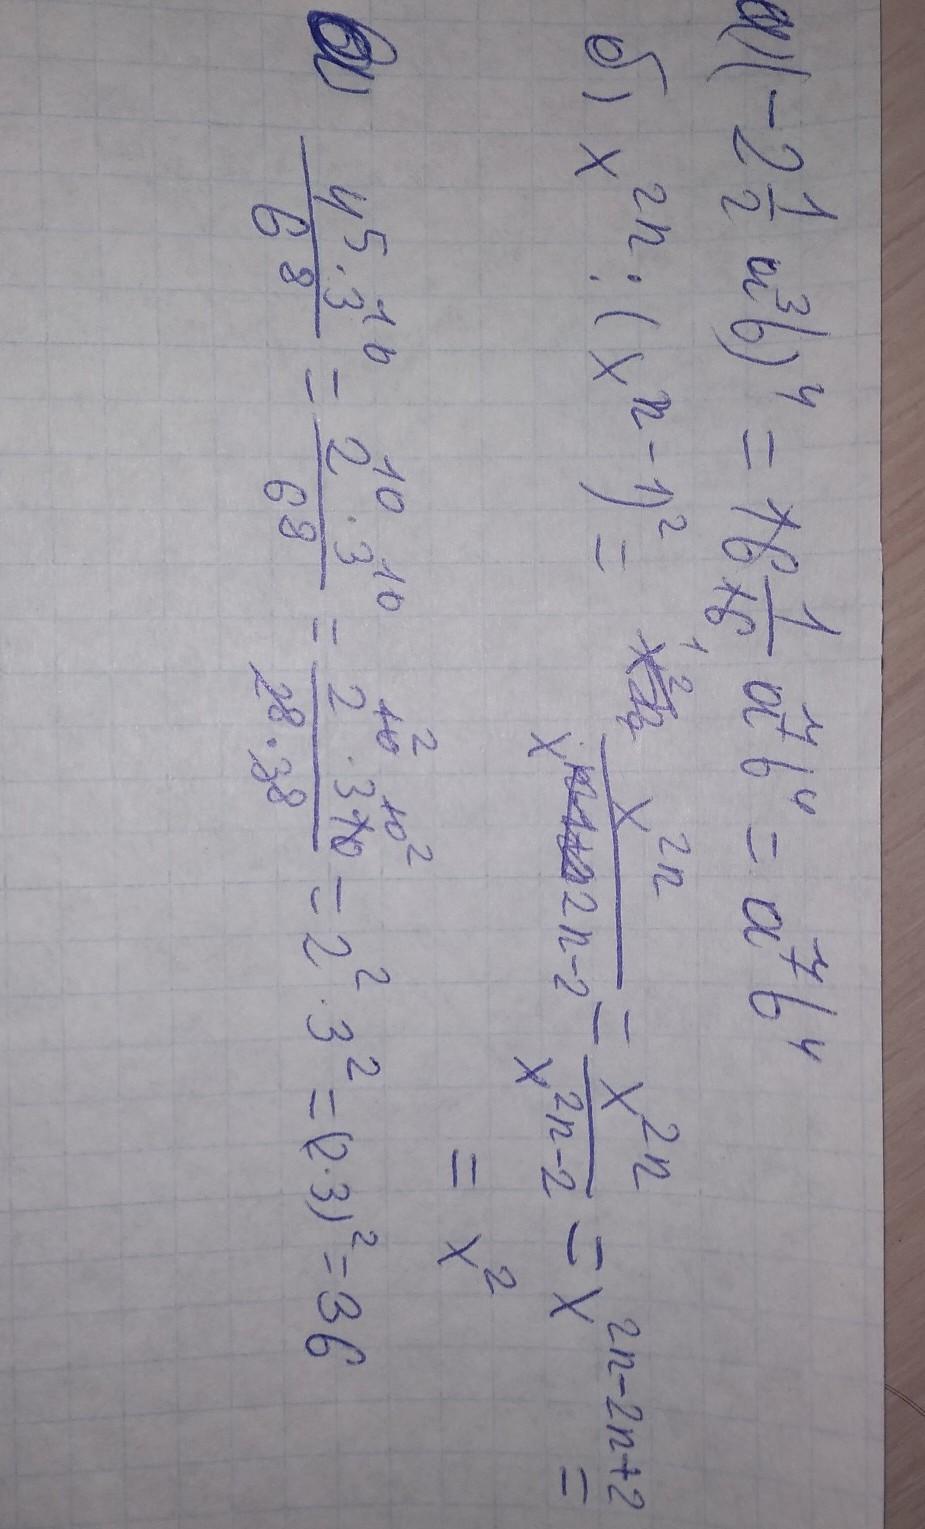 а) (-2 1/2 a³b)⁴ = 16 1/16 a⁷b⁴ = a⁷b⁴
б) x²ⁿ : (xⁿ⁻¹)² = x²ⁿ/x²ⁿ⁻² = x²ⁿ/x²ⁿ⁻² = x²ⁿ⁻²ⁿ⁺² =
= x²
в) 4⁵·3¹⁰/6⁸ = 2¹⁰·3¹⁰/6⁸ = 2¹⁰·3¹⁰/2⁸·3⁸ = 2²·3² = (2·3)² = 36